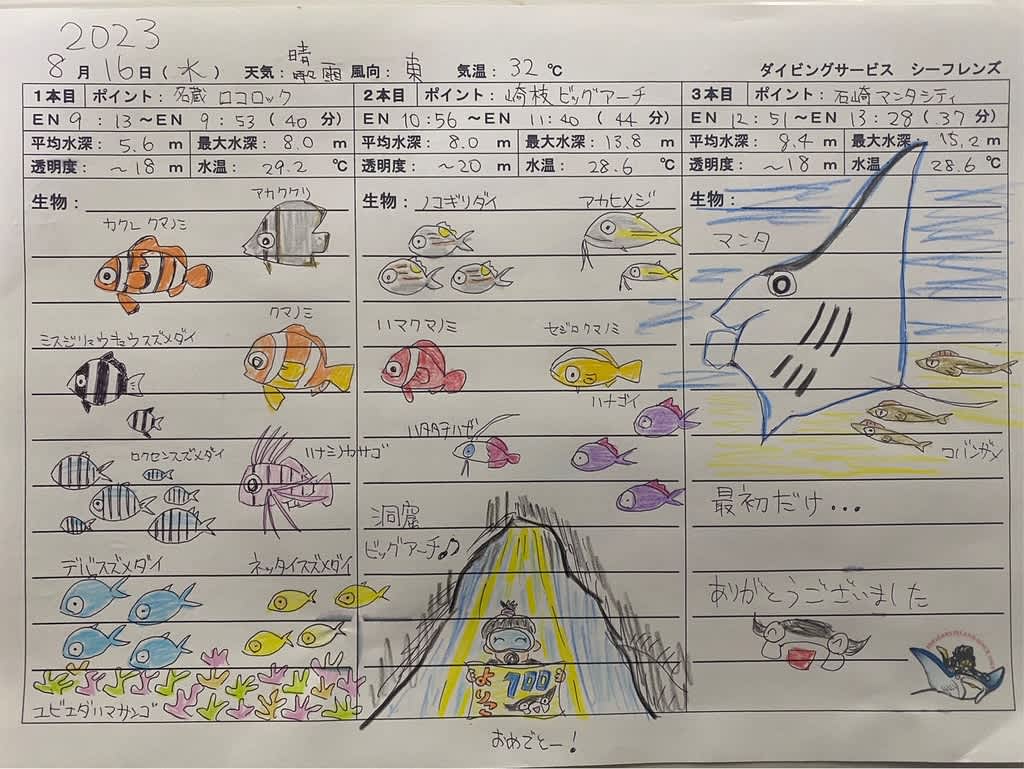 2023
8月16日(水) 天気:晴 曇 雨 風向:東 気温:32℃ ダイビングサービス シーフレンズ
1本目 ポイント:名蔵 ロコロック
EN 9:13~EN 9:53(40分)
平均水深:5.6m 最大水深:8.0m
透明度:~18m 水温:29.2℃
生物:
アカククリ
カクレクマノミ
クマノミ
ミスジリュウキュウスズメダイ
ロクセンスズメダイ
ハナミノカサゴ
デバスズメダイ
ネッタイスズメダイ
ユビエダハマサンゴ
2本目 ポイント:崎枝 ビッグアーチ
EN 10:56~EN 11:40(44分)
平均水深:8.0m 最大水深:13.8m
透明度:~20m 水温:28.6℃
生物:ノコギリダイ アカヒメジ
ハマクマノミ
セジロクマノミ
ハナゴイ
ハタタテハゼ
洞窟
ビッグアーチ♪
100
おめでとー!
3本目 ポイント:石崎 マンタシティ
EN 12:51~EN 13:28(37分)
平均水深:8.4m 最大水深:15.2m
透明度:~18m 水温:28.6℃
生物:
マンタ
コバンザメ
最初だけ...
ありがとうございました